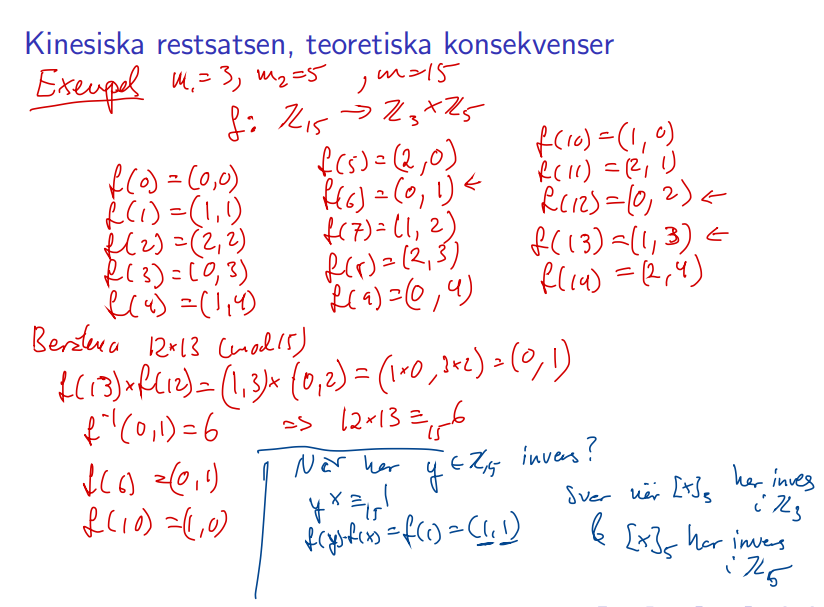 Kinesiska restsatsen, teoretiska konsekvenser
Exempel m₁=3, m₂=5, m=15
f: ℤ₁₅ → ℤ₃×ℤ₅
f(0)=(0,0)
f(1)=(1,1)
f(2)=(2,2)
f(3)=(0,3)
f(4)=(1,4)
f(5)=(2,0)
f(6)=(0,1) ←
f(7)=(1,2)
f(8)=(2,3)
f(9)=(0,4)
f(10)=(1,0)
f(11)=(2,1)
f(12)=(0,2) ←
f(13)=(1,3) ←
f(14)=(2,4)
Beräkna 12×13 (mod 15)
f(13)×f(12)=(1,3)×(0,2)=(1×0, 3×2)=(0,1)
f⁻¹(0,1)=6 => 12×13 ≡₁₅ 6
f(6)=(0,1)
f(10)=(1,0)
När har y ∈ ℤ₁₅ invers?
yx ≡₁₅ 1
f(y)·f(x)=f(1)=(1,1)
Svar när [x]₃ har invers
i ℤ₃
& [x]₅ har invers
i ℤ₅